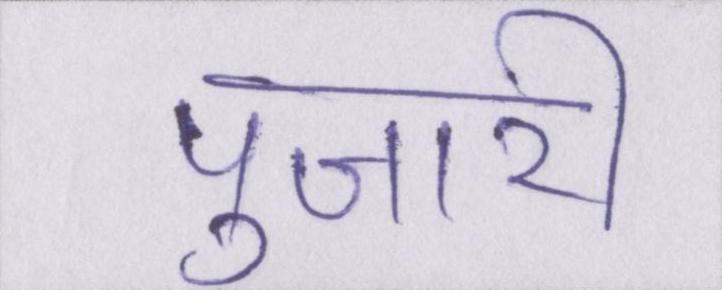 पुजारी